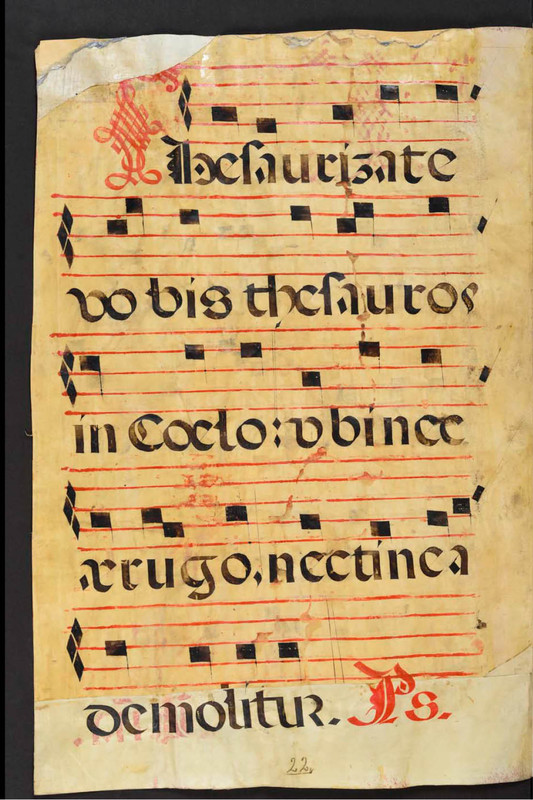 Thesaurizate
vo bis thesauros
in Coelo: v bi nec
ærugo, nec tinea
demolitur. Ps.
22.